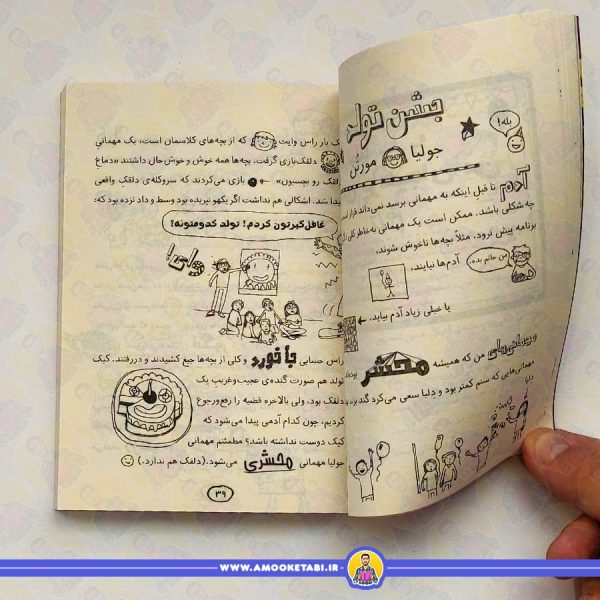 جشن تولد
بله!
جولیا
مورس
آدم تا قبل اینکه به مهمانی برسد نمی‌داند قرار
چه شکلی باشد. ممکن است یک مهمانی به‌خاطر کلی
برنامه پیش نرود. مثلاً بچه‌ها ناخوش شوند.
آدم‌ها نیایند،
من حالم بده.
یا خیلی زیاد آدم بیاید.
مهمانی‌های من که همیشه محشر بوده‌اند
مهمانی‌هایی که سنم کمتر بود و دلیا سعی می‌کرد گند بزند
دلیا
یک بار راس وایت که از بچه‌های کلاسمان است، یک مهمانیِ
دلقک‌بازی گرفت. بچه‌ها همه خوش و خوش‌حال داشتند «دماغِ
دلقک رو بچسبون» بازی می‌کردند که سروکله‌ی دلقکِ واقعی
پیدا شد. اشکالی هم نداشت اگر یکهو نپریده بود وسط و داد نزده بود که:
غافل‌گیرتون کردم! تولد کدومتونه؟
وای!
راس حسابی جا خورد و کلی از بچه‌ها جیغ کشیدند و دررفتند. کیک
تولد هم صورت گنده‌ی عجیب‌وغریب یک
دلقک بود، ولی بالاخره قضیه را رفع‌ورجوع
کردیم، چون کدام آدمی پیدا می‌شود که
کیک دوست نداشته باشد؟ مطمئنم مهمانی
جولیا مهمانی محشری می‌شود. (دلقک هم ندارد.)
۳۹
WWW.AMOOKETABI.IR